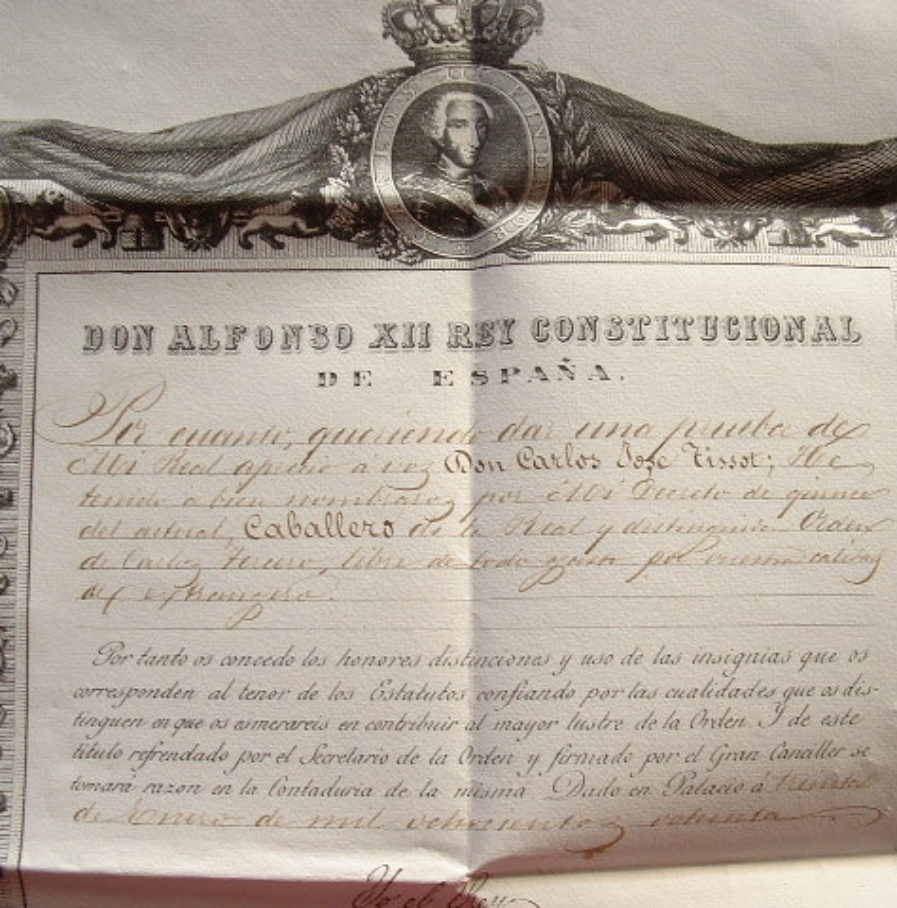 DON ALFONSO XII REY CONSTITUCIONAL
DE ESPAÑA.
Por cuanto, queriendo dar una prueba de
Mi Real aprecio á voz Don Carlos José Tissot; He
tenido a bien nombraros por Mi Decreto de quince
del actual, Caballero de la Real y distinguida Orden
de Carlos Tercero, libre de todo gasto por vuestra calidad
de extrangero.
Por tanto os concedo los honores distinciones y uso de las insignias que os
corresponden al tenor de los Estatutos confiando por las cualidades que os dis-
tinguen en que os esmerareis en contribuir al mayor lustre de la Orden. Y de este
titulo refrendado por el Secretario de la Orden y firmado por el Gran Canciller se
tomará razon en la Contaduria de la misma Dado en Palacio á treinta
de Enero de mil ochocientos ochenta
Yo el Rey